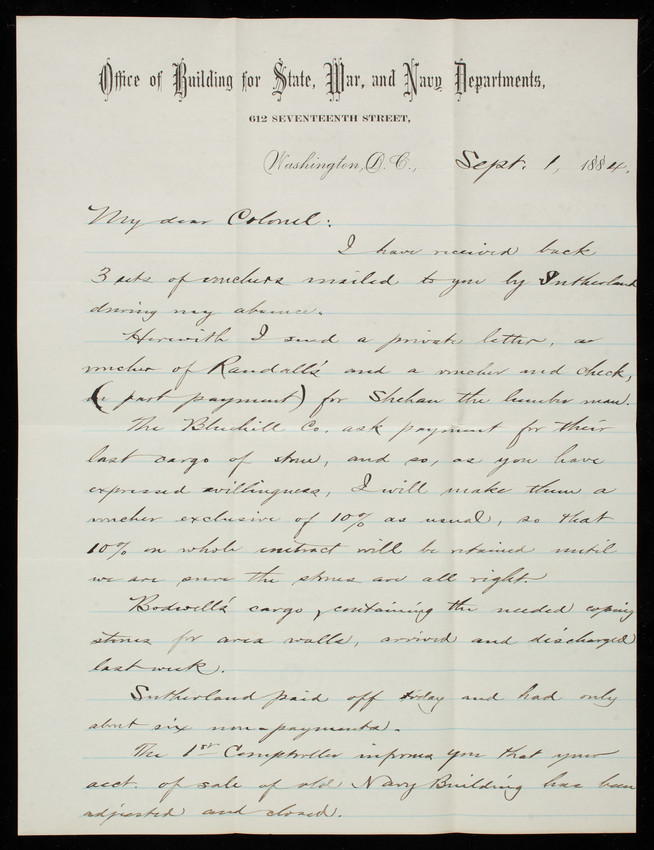 Office of Building for State, War, and Navy Departments,
612 SEVENTEENTH STREET,
Washington, D.C., Sept. 1, 1884.
My dear Colonel:
I have received back
3 sets of vouchers mailed to you by Sutherland
during my absence.
Herewith I send a private letter, a
voucher of Randall's and a voucher and check,
( part payment) for Shehan the lumber man.
The Bluehill Co. ask payment for their
last cargo of stone, and so, as you have
expressed willingness, I will make them a
voucher exclusive of 10% as usual, so that
10% on whole contract will be retained until
we are sure the stones are all right.
Bodwell's cargo, containing the needed coping
stones for area walls, arrived and discharged
last week.
Sutherland paid off today and had only
about six non-payments.
The 1st Comptroller informs you that your
acct. of sale of old Navy Building has been
adjusted and closed.